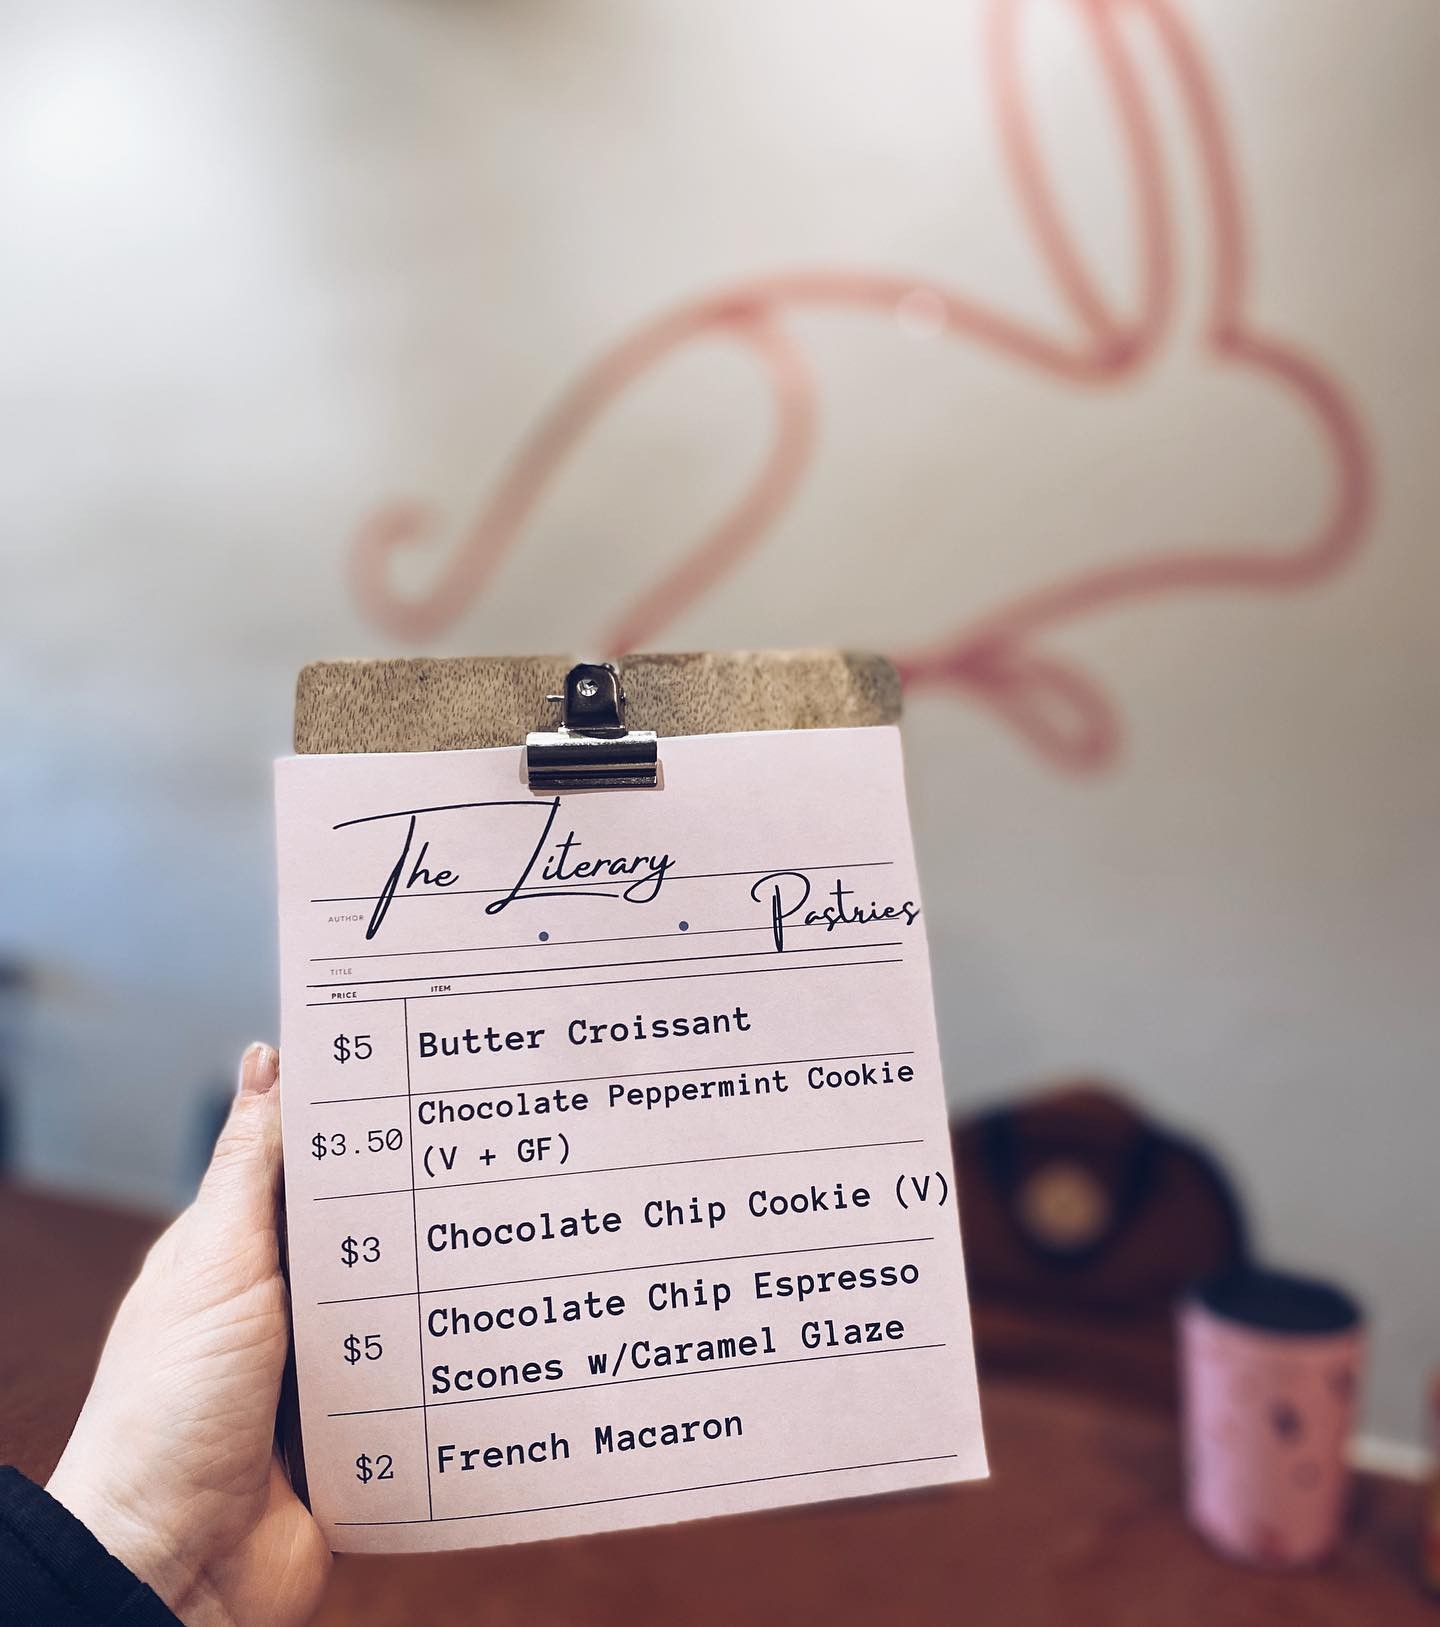 The Literary
AUTHOR
Pastries
TITLE
PRICE ITEM
$5 Butter Croissant
$3.50 Chocolate Peppermint Cookie
(V + GF)
$3 Chocolate Chip Cookie (V)
$5 Chocolate Chip Espresso
Scones w/Caramel Glaze
$2 French Macaron